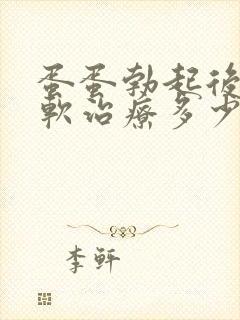 蛋蛋勃起後
軟治療多少
李軒